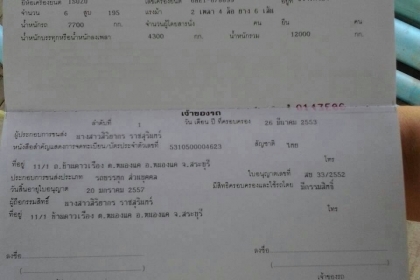 จำนวน 6 สูบ 195 แรงม้า 2 เพลา 4 ล้อ ยาง 6 เส้น
น้ำหนักรถ 7700 กก. จำนวนผู้โดยสารนั่ง คน ยืน คน
น้ำหนักบรรทุกหรือน้ำหนักลงเพลา 4300 กก. น้ำหนักรวม 12000 กก.
เจ้าของรถ
ลำดับที่ 1 วัน เดือน ปี ที่ครอบครอง 26 มีนาคม 2553
ผู้ประกอบการขนส่ง นางสาวสิริยากร ราชสุรินทร์
5310500004623 สัญชาติ ไทย
ที่อยู่ 11/1 ต.หนองแค อ.หนองแค จ.สระบุรี โทร
ประกอบการขนส่งประเภท รถบรรทุก ส่วนบุคคล ใบอนุญาตเลขที่ สบ 33/2552
วันสิ้นอายุใบอนุญาต 20 มกราคม 2557 มีสิทธิครอบครองและใช้รถโดย มีกรรมสิทธิ์
ผู้ถือกรรมสิทธิ์ นางสาวสิริยากร ราชสุรินทร์
ที่อยู่ 11/1 ต.หนองแค อ.หนองแค จ.สระบุรี โทร
ลงชื่อ ลงชื่อ
เจ้าของรถ